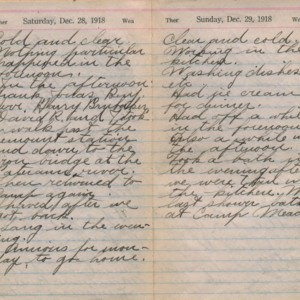 Ther Saturday, Dec. 28, 1918 Wea
Cold and clear.
Nothing particular
happened in the
forenoon.
In the afternoon
David R. and I took
a walk past the
remount station
and down to the
iron bridge at the
river.
Then returned to
camp again.
Shaved after we
got back.
Sang in the eve-
ning.
Anxious for mon-
day, to go home.
Ther Sunday, Dec. 29, 1918 Wea
Clear and cold
Working in the
kitchen.
Washing dishes
etc
Had ice cream
for dinner.
Had off a while
in the forenoon
also a while in
the afternoon.
Took a bath in
the evening after
we were thru in
the kitchen. My
last shower bath
at Camp Meade